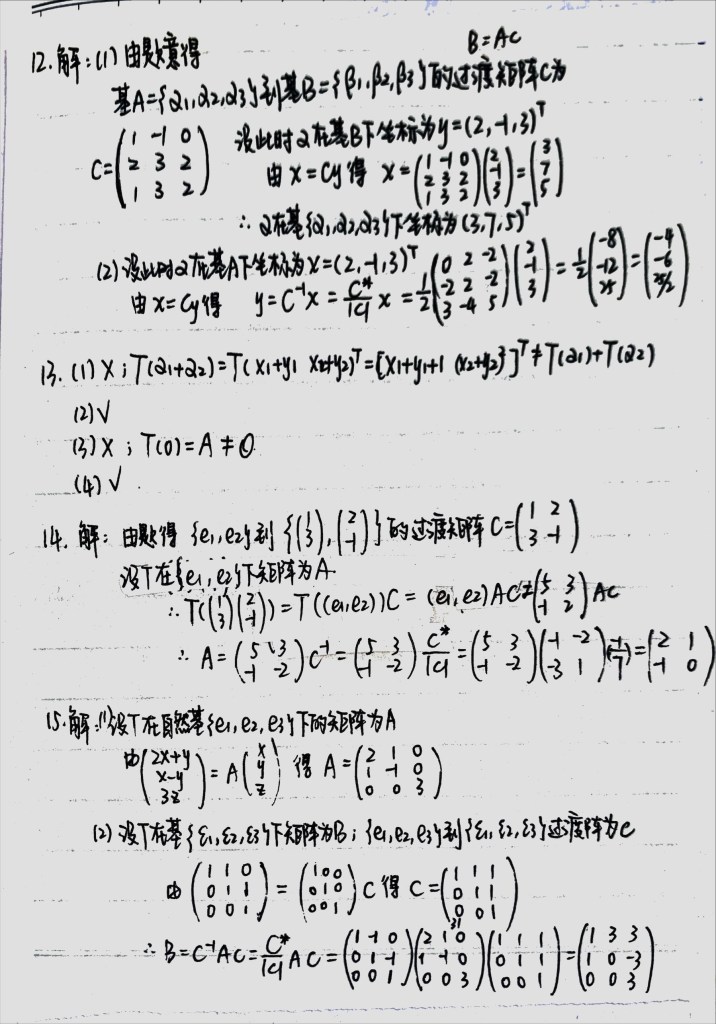 B=AC
12.解:(1)由题意得
基A={α1,α2,α3}到基B={β1,β2,β3}的过渡矩阵C为
C=(1 -1 0; 2 3 2; 1 3 2) 设此时α在基B下坐标为y=(2,-1,3)^T
由x=Cy得 x=(1 -1 0; 2 3 2; 1 3 2)(2; -1; 3)=(3; 7; 5)
∴ α在基{α1,α2,α3}下坐标为(3,7,5)^T
(2)设此时α在基A下坐标为x=(2,-1,3)^T
由x=Cy得 y=C^-1x=C*/|C| x=1/2(0 2 -2; -2 2 -2; 3 -4 5)(2; -1; 3)=1/2(-8; -12; 25)=(-4; -6; 25/2)
13. (1)×;T(α1+α2)=T(x1+y1 x2+y2)^T=[x1+y1+1 (x2+y2)^3]^T≠T(α1)+T(α2)
(2)√
(3)×;T(0)=A≠0
(4)√
14. 解: 由题得 {e1,e2}到{(1; 3),(2; -1)}的过渡矩阵C=(1 2; 3 -1)
设T在{e1,e2}下矩阵为A
∴T((1; 3)(2; -1))=T((e1,e2))C=(e1,e2)AC=(5 3; -1 2)AC
∴ A=(5 3; -1 -2)C^-1=(5 3; -1 -2)C*/|C|=(5 3; -1 -2)(-1 -2; -3 1)(-1/7)=(2 1; -1 0)
15.解:(1)设T在自然基{e1,e2,e3}下的矩阵为A
由(2x+y; x-y; 3z)=A(x; y; z) 得 A=(2 1 0; 1 -1 0; 0 0 3)
(2)设T在基{ε1,ε2,ε3}下矩阵为B;{e1,e2,e3}到{ε1,ε2,ε3}过渡阵为C
由(1 1 0; 0 1 1; 0 0 1)=(1 0 0; 0 1 0; 0 0 1)C得 C=(1 1 1; 0 1 1; 0 0 1)
∴ B=C^-1AC=C*/|C| AC=(1 -1 0; 0 1 -1; 0 0 1)(2 1 0; 1 -1 0; 0 0 3)(1 1 1; 0 1 1; 0 0 1)=(1 3 3; 1 0 -3; 0 0 3)